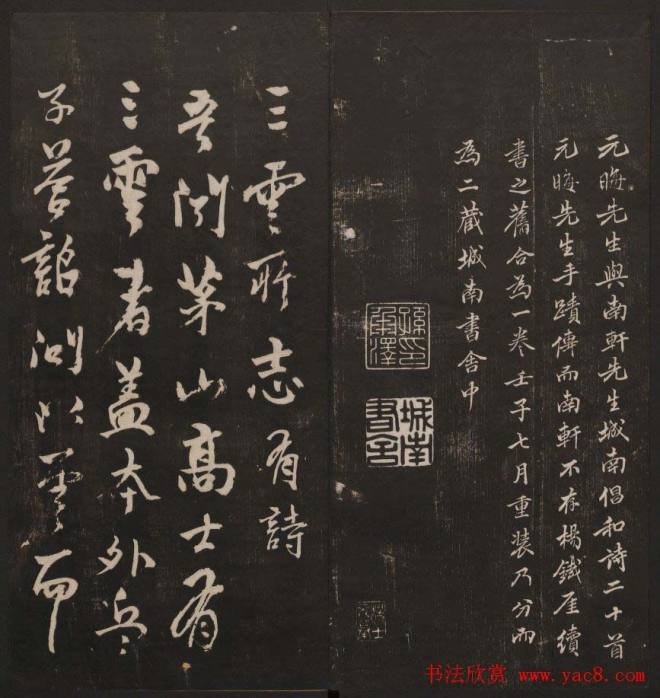 元晦先生與南軒先生城南倡和诗二十首
元晦先生手蹟傳而南軒不存楊鐵厓續
書之舊合為一卷壬子七月重装乃分而
為二藏城南書舍中
城南書舍
三雲所志有詩
吾闻茅山高士有
三雲者盖本外兵
子
而
书法欣赏 www.yac8.com